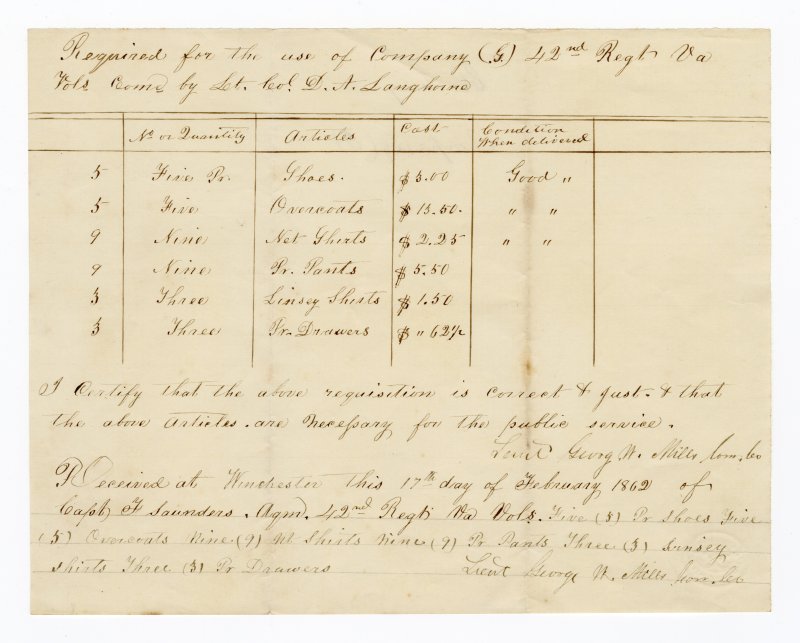 Required for the use of Company (G) 42nd Regt Va
Vols Comd by Lt. Col. D. A. Langhorne
No or Quantity Articles Cost Condition When delivered
5 Five Pr. Shoes. $3.00 Good "
5 Five Overcoats $13.50. " "
9 Nine Net Shirts $2.25 " "
9 Nine Pr. Pants $5.50
3 Three Linsey Shirts $1.50
3 Three Pr. Drawers $ " 62½
I Certify that the above requisition is correct & just. & that
the above articles. are necessary for the public service.
Lieut Georg W. Mills Com. Co
Received at Winchester this 17th day of February 1862 of
Capt F Saunders. Aqm. 42nd Regt Va Vols. Five (5) Pr Shoes Five
(5) Overcoats Nine (9) Nt Shirts Nine (9) Pr Pants Three (3) Linsey
shirts Three (3) Pr Drawers Lieut George W. Mills Com. Co